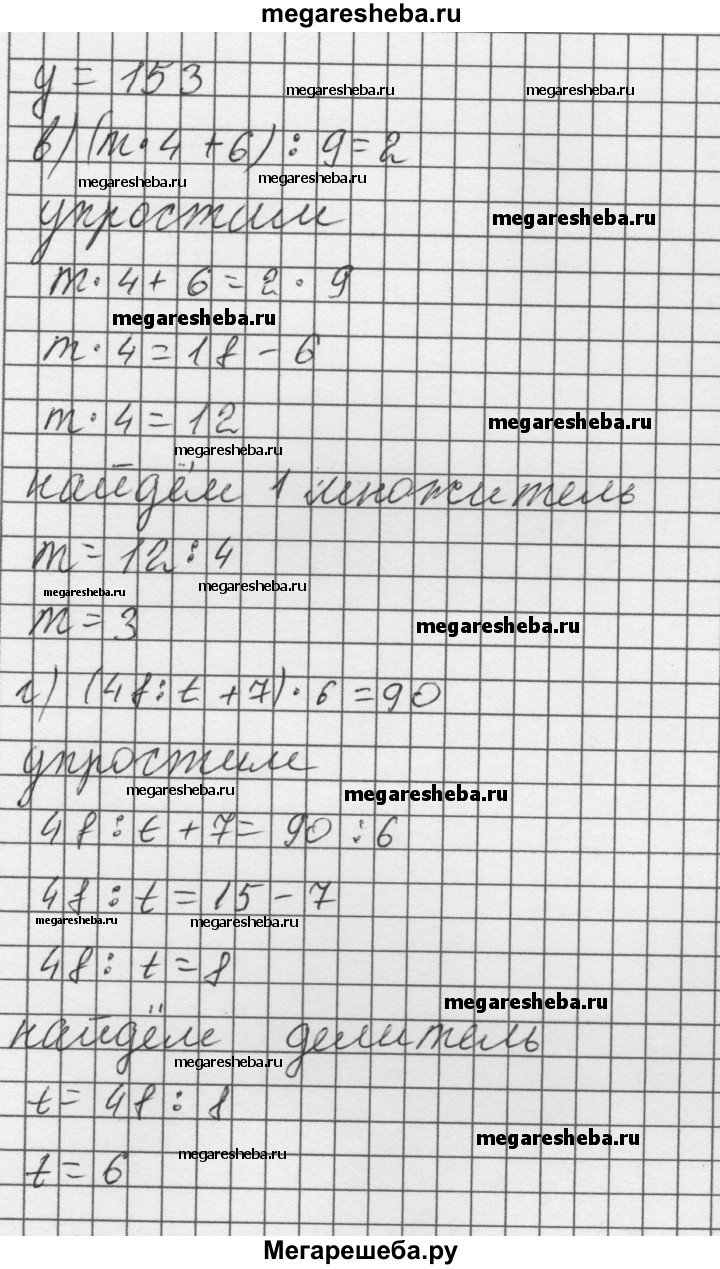 megaresheba.ru
y = 153
megaresheba.ru megaresheba.ru
в) (m · 4 + 6) : 9 = 2
megaresheba.ru megaresheba.ru
упростим
megaresheba.ru
m · 4 + 6 = 2 · 9
megaresheba.ru
m · 4 = 18 - 6
m · 4 = 12
megaresheba.ru
megaresheba.ru
найдём 1 множитель
m = 12 : 4
megaresheba.ru megaresheba.ru
m = 3
megaresheba.ru
г) (48 : t + 7) · 6 = 90
упростим
megaresheba.ru megaresheba.ru
48 : t + 7 = 90 : 6
48 : t = 15 - 7
megaresheba.ru megaresheba.ru
48 : t = 8
megaresheba.ru
найдём делитель
megaresheba.ru
t = 48 : 8
megaresheba.ru
megaresheba.ru
t = 6
Мегарешеба.ру